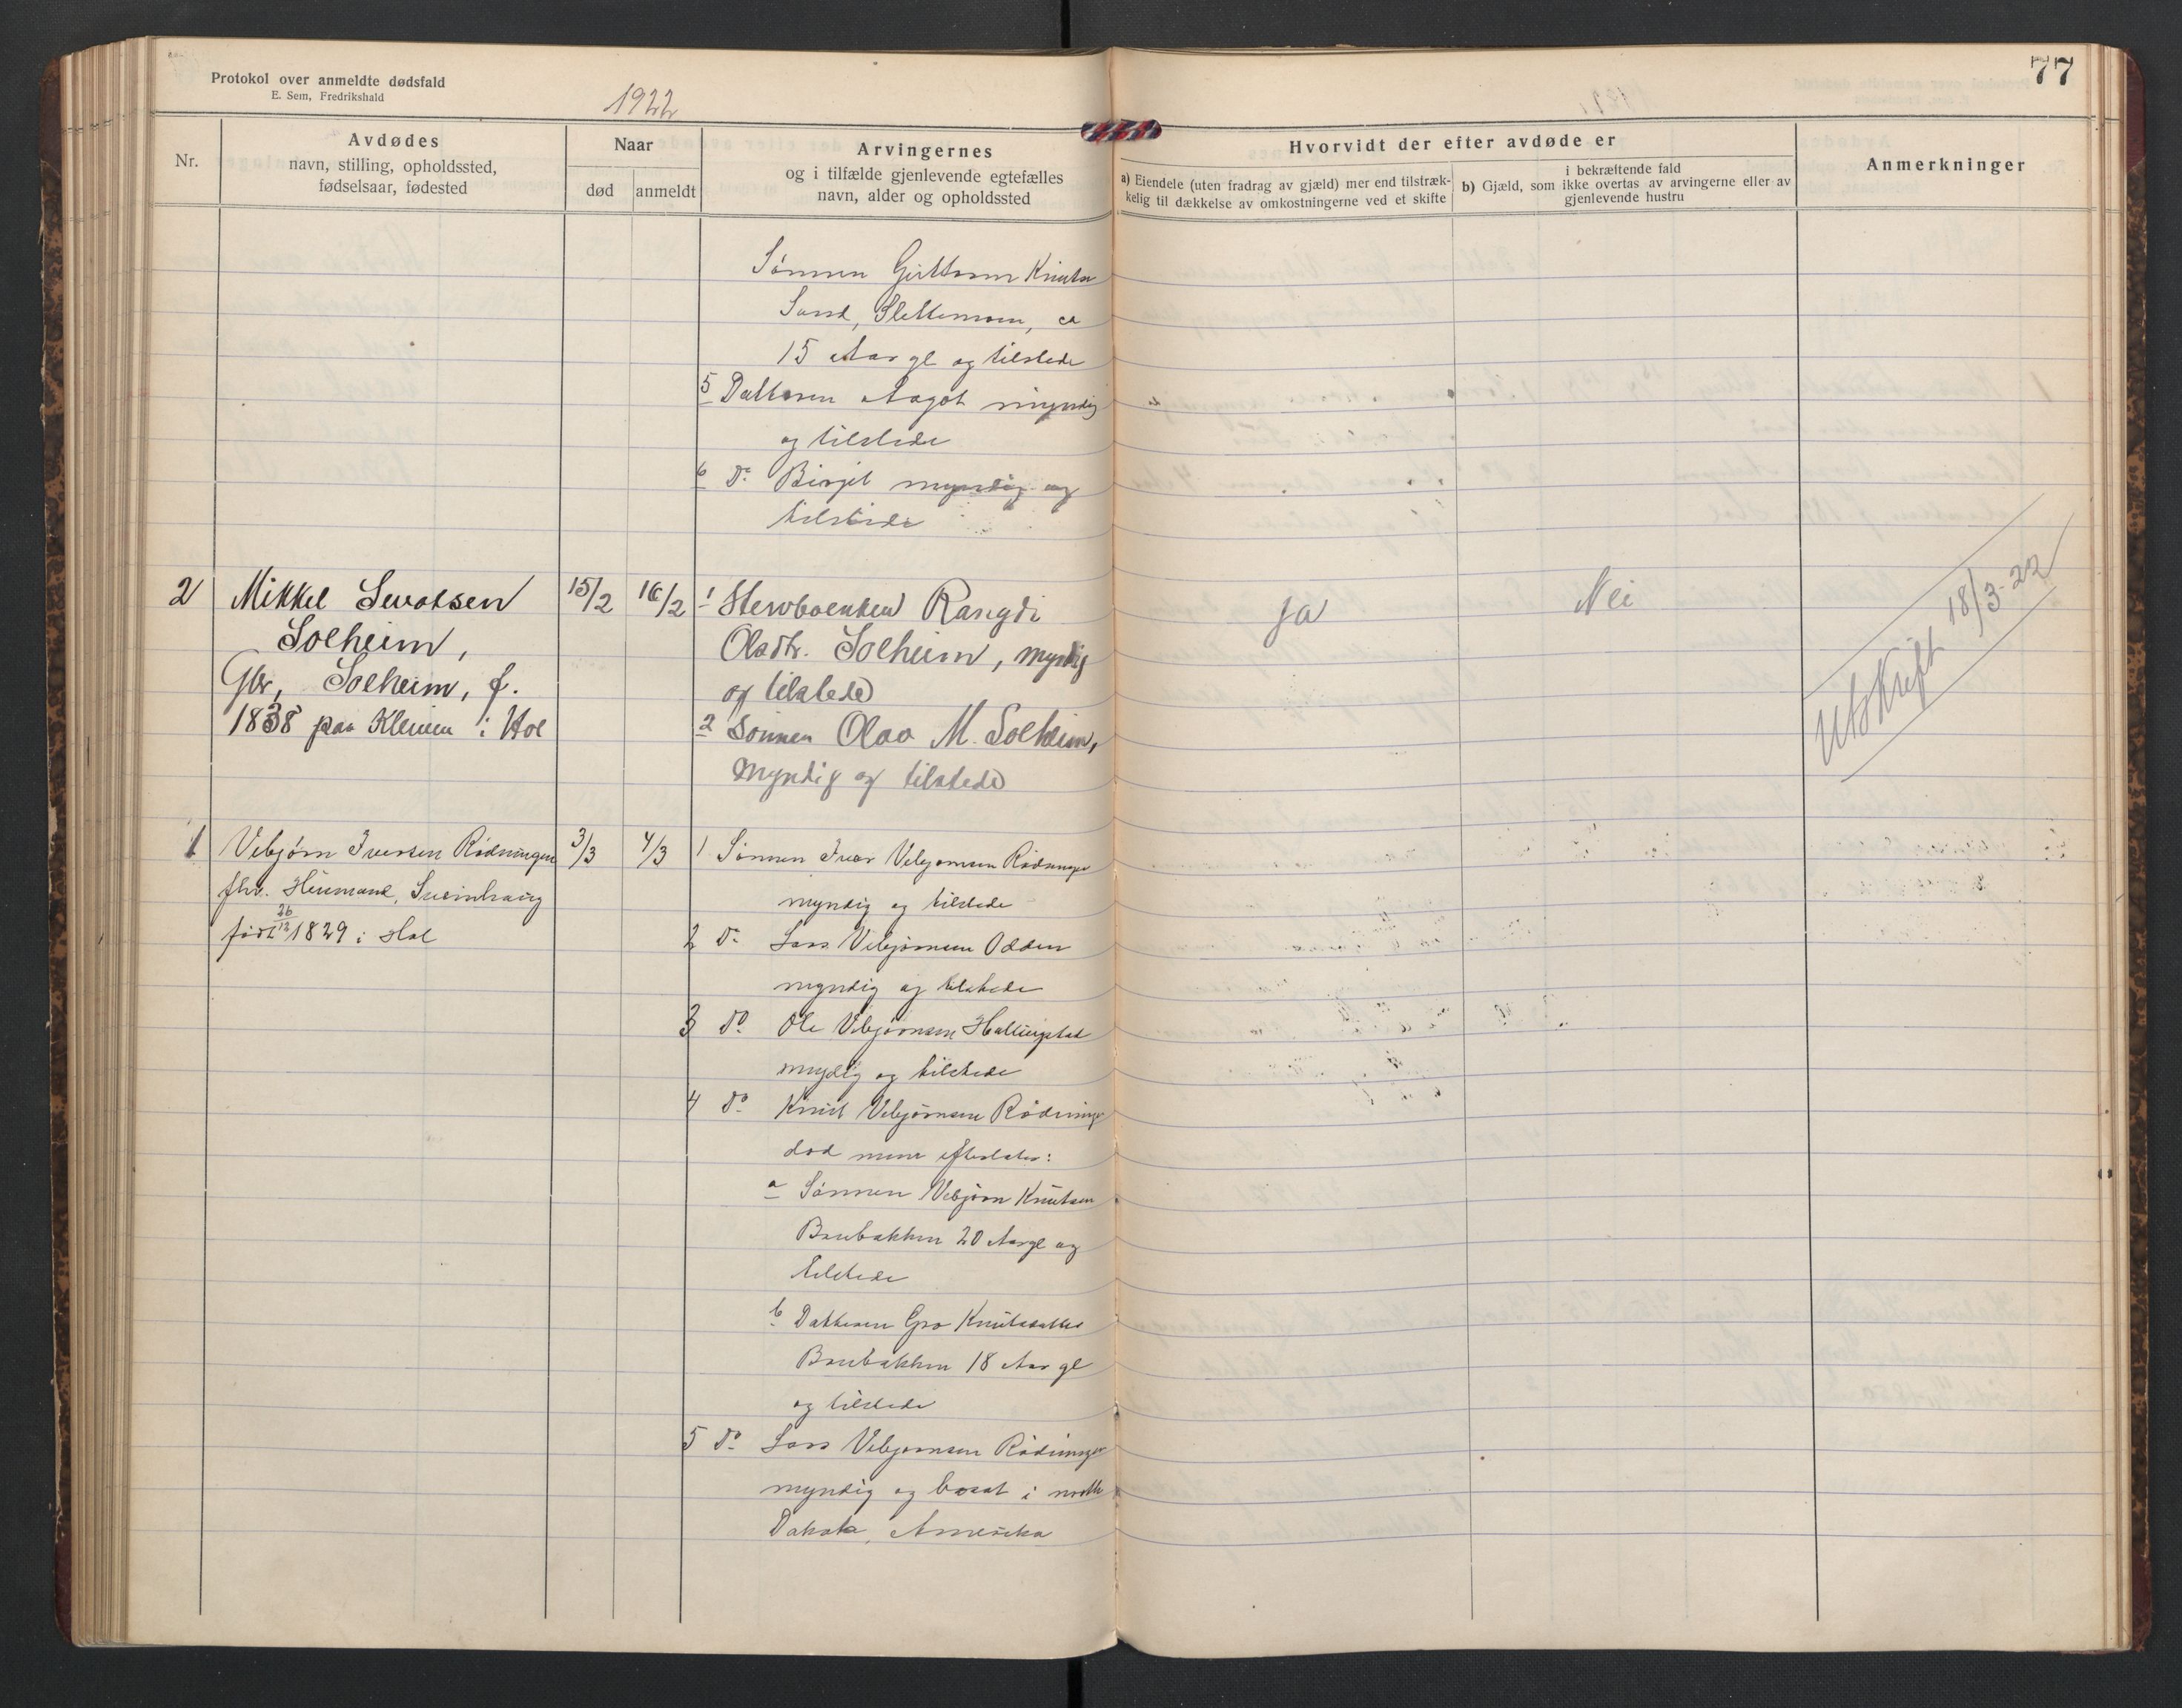 Protokol over anmeldte dødsfald
E. Sem, Fredrikshald
1922
77
Nr.
Avdødes
navn, stilling, opholdssted,
fødselsaar, fødested
Naar
død
anmeldt
Arvingernes
og i tilfælde gjenlevende egtefælles
navn, alder og opholdssted
Hvorvidt der efter avdøde er
a) Eiendele (uten fradrag av gjæld) mer end tilstræk-
kelig til dækkelse av omkostningerne ved et skifte
i bekræftende fald
b) Gjæld, som ikke overtas av arvingerne eller av
gjenlevende hustru
Anmerkninger
Sønnen Knuts
Sand, Slettemoen, ca
15 Aar gl og tilstede
5 Datteren Aagot myndig
og tilstede
6 Do Birgit myndig og
tilstede
2
Mikkel Sevatsen
Solheim,
Gbr, Solheim, f.
1838 paa Kleiven i Hol
15/2
16/2
1 Stervboenken Rangdi
Olsdtr. Solheim, myndig
og tilstede
2 Sønnen Olav M. Solheim,
myndig og tilstede
Ja
Nei
Utskrift 18/3-22
1
Vebjørn Iversen Rødningen
fhv. Husmand, Sveinhaug
født 26/12 1829 i Hol
3/3
4/3
1 Sønnen Iver Vebjørnsen Rødningen
myndig og tilstede
2 Do Lars Vebjørnsen Odden
myndig og tilstede
3 Do Ole Vebjørnsen Hallingstad
mydig og tilstede
4 Do Knut Vebjørnsen Rødninge
død men efterlater:
a Sønnen Vebjørn Knutsen
Brubakken 20 Aar gl og
tilstede
b Datteren Gro Knutsdatter
Brubakken 18 Aar gl
og tilstede
5 Do Lars Vebjørnsen Rødningen
myndig og bosat i north
Dakota, Amerika